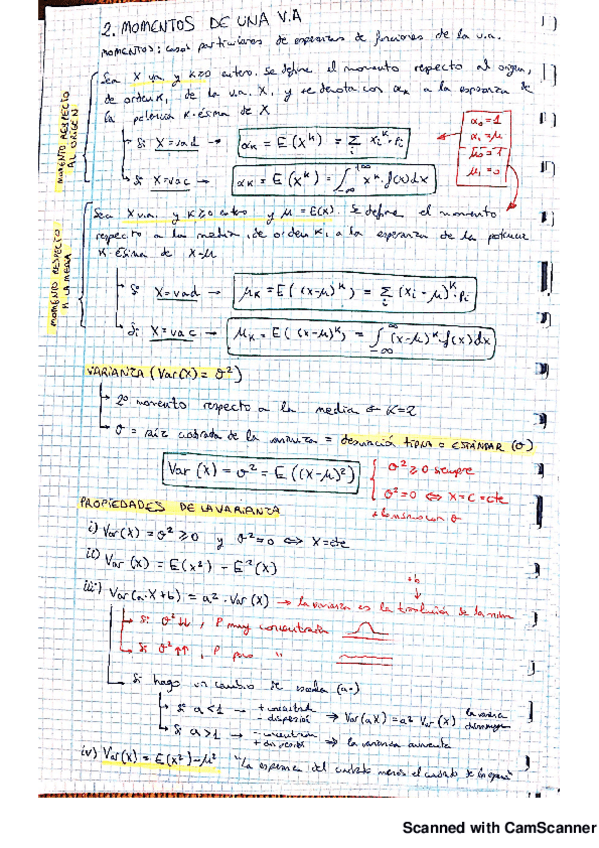 2. MOMENTOS DE UNA V.A
MOMENTOS: casos particulares de esperanzas de funciones de la v.a.
MOMENTO RESPECTO AL ORIGEN
Sea X v.a. y K≥0 entero. Se define el momento respecto al origen,
de orden K, de la v.a. X, y se denota con αk a la esperanza de
la potencia K-ésima de X
Si X=vad → αk = E(X^k) = Σi xi^k · pi
Si X=vac → αk = E(X^k) = ∫-∞^+∞ x^k · f(x)dx
α0=1
α1=μ
μ0=1
μ1=0
MOMENTO RESPECTO A LA MEDIA
Sea X v.a. y K≥0 entero y μ=E(X). Se define el momento
respecto a la media, de orden K, a la esperanza de la potencia
K-ésima de X-μ
Si X=vad → μk = E((X-μ)^k) = Σi (xi-μ)^k · pi
Si X=vac → μk = E((X-μ)^k) = ∫-∞^∞ (x-μ)^k · f(x)dx
VARIANZA (Var(X) = σ²)
2º momento respecto a la media ← K=2
σ = raíz cuadrada de la varianza = desviación típica o ESTÁNDAR (σ)
Var(X) = σ² = E((X-μ)²)
σ²≥0 siempre
σ²=0 ⇔ X=C=cte
PROPIEDADES DE LA VARIANZA
i) Var(X) = σ²≥0 y σ²=0 ⇔ X=cte
ii) Var(X) = E(X²) - E²(X)
+b
iii) Var(a·X+b) = a²·Var(X) → la varianza es la traslación de la
Si σ²↓↓, P muy concentrada
Si σ²↑↑, P poco "
Si hago un cambio de escala (a·)
Si a<1 → + concentrada - dispersión ⇒ Var(aX) = a² Var(X) la varianza disminuye
Si a>1 → - concentrada + dispersión ⇒ la varianza aumenta
iv) Var(X) = E(X²) - μ² "La esperanza del cuadrado menos el cuadrado de la esperanza"
Scanned with CamScanner